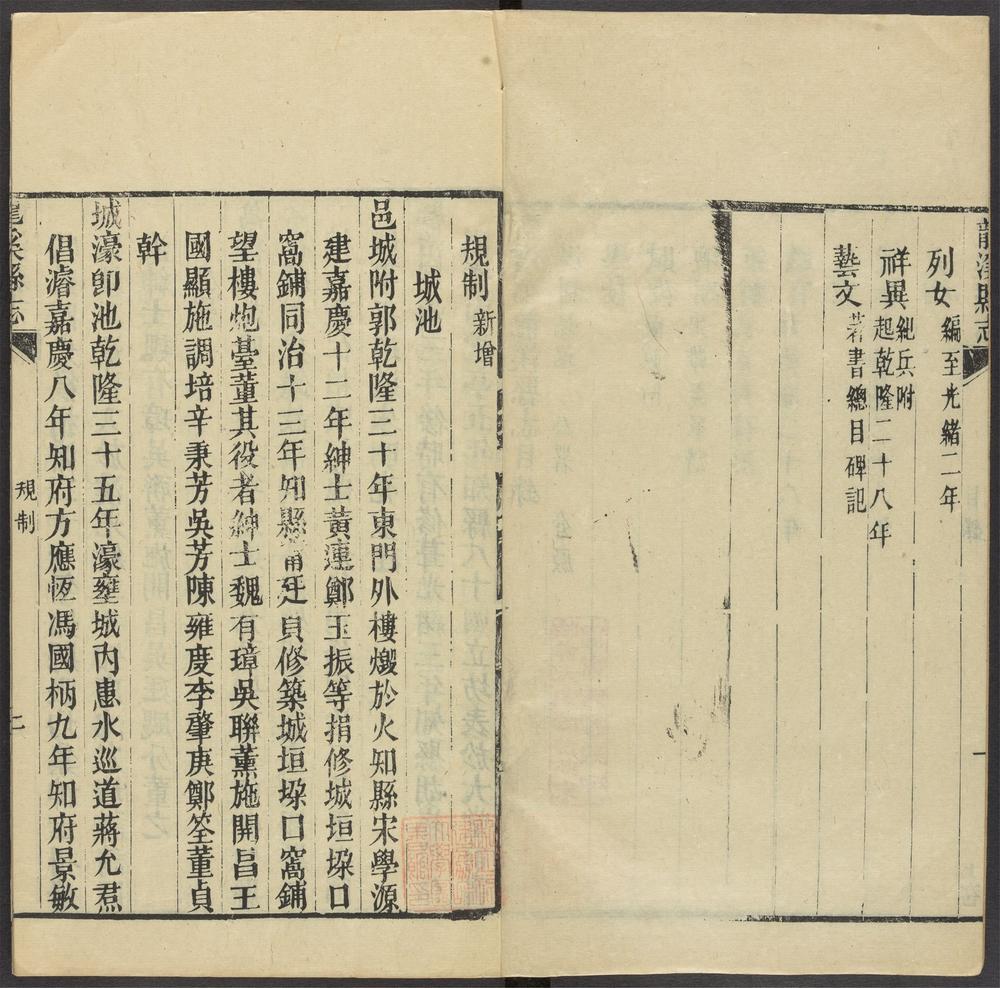 龍溪縣志
列女 編至光緒二年
祥異 紀兵附 起乾隆二十八年
藝文 著書總目碑記
一
規制 新增
城池
邑城附郭乾隆三十年東門外樓燬於火知縣宋學源
建嘉慶十二年紳士黃蓮鄭玉振等捐修城垣垜口
窩鋪同治十三年知縣 廷貝修築城垣垜口窩鋪
望樓炮臺董其役者紳士魏有璋吳聯薰施開昌王
國顯施調培辛秉芳吳芳陳雍度李肇庚鄭筌董貞
幹
城濠卽池乾隆三十五年濠壅城內患水巡道蔣允焄
倡濬嘉慶八年知府方應恆馮國柄九年知府景敏
龍溪縣志
規制
二